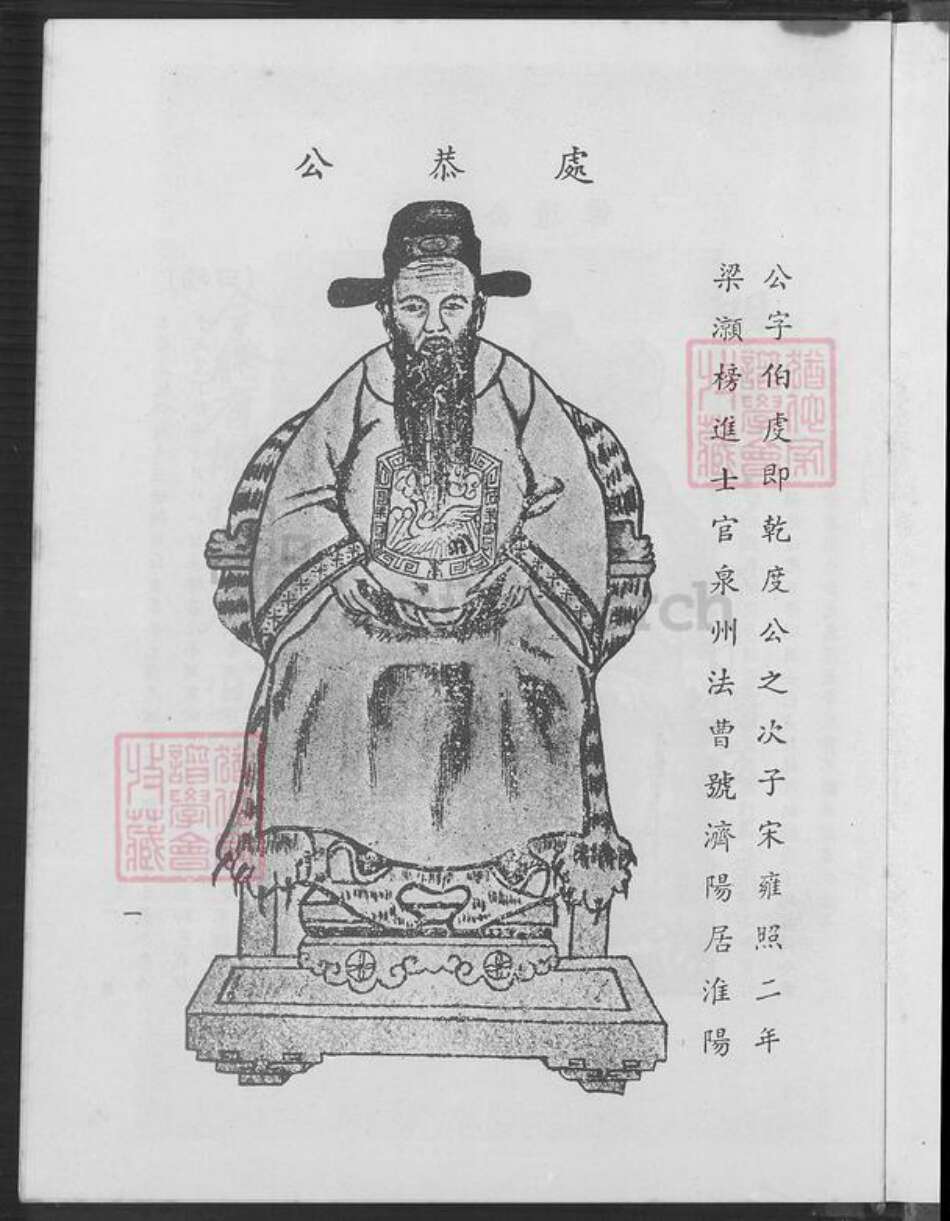 處恭公
公字伯虔即乾度公之次子宋雍照二年
梁灝榜進士官泉州法曹號濟陽居淮陽
譜學會
收藏
譜學會
收藏
一